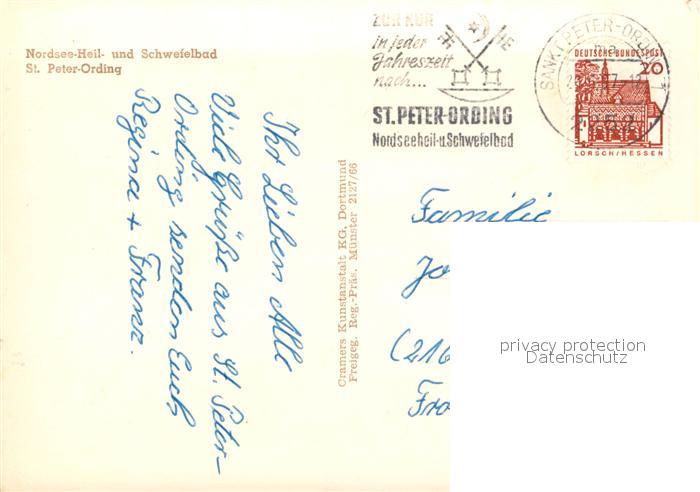 Nordsee-Heil- und Schwefelbad
St. Peter-Ording
ZUR KUR
in jeder
Jahreszeit
nach...
ST. PETER-ORDING
Nordseeheil-u.Schwefelbad
SANKT PETER-ORDING
DEUTSCHE BUNDESPOST
20
LORSCH/HESSEN
Ihr Lieben Alle
Viele Grüße aus St. Peter-
Ording senden Euch
Regina + Franz.
Cramers Kunstanstalt KG, Dortmund
Freigeg. Reg.-Präs. Münster 2127/66
Familie
Jo
(216
Fro
privacy protection
Datenschutz